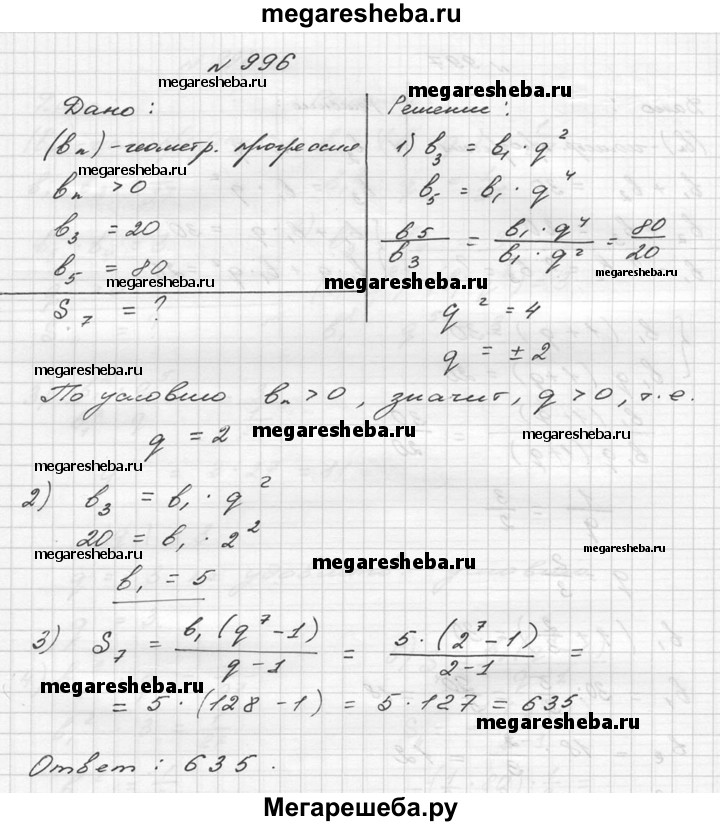 megaresheba.ru
№ 996
megaresheba.ru
Дано :
(bₙ) - геометр. прогрессия
megaresheba.ru
bₙ > 0
b₃ = 20
b₅ = 80
S₇ = ?
Решение :
1) b₃ = b₁ · q²
b₅ = b₁ · q⁴
b₅/b₃ = (b₁ · q⁴)/(b₁ · q²) = 80/20
megaresheba.ru
megaresheba.ru
q² = 4
q = ± 2
megaresheba.ru
По условию bₙ > 0, значит, q > 0, т.е.
q = 2
megaresheba.ru
megaresheba.ru
megaresheba.ru
2) b₃ = b₁ · q²
20 = b₁ · 2²
megaresheba.ru
megaresheba.ru
megaresheba.ru
b₁ = 5
3) S₇ = b₁(q⁷ - 1)/(q - 1) = 5 · (2⁷ - 1)/(2 - 1) =
megaresheba.ru
= 5 · (128 - 1) = 5 · 127 = 635
megaresheba.ru
Ответ : 635 .
Мегарешеба.ру